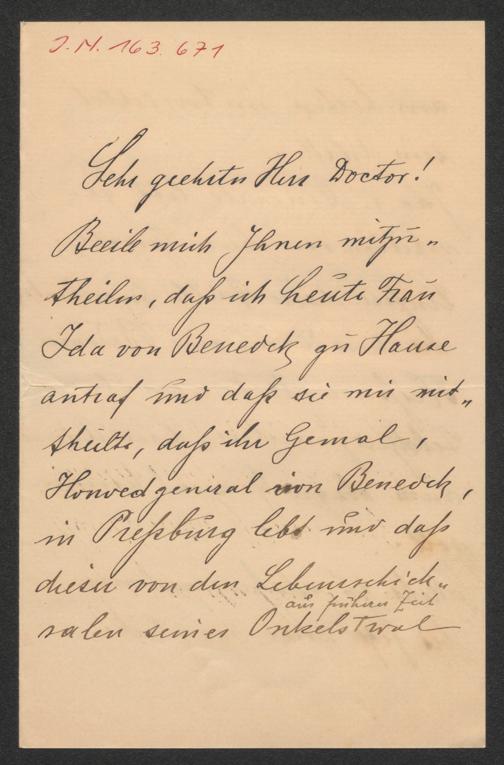 J. N. 163.671
Sehr geehrter Herr Doctor!
Beeile mich Ihnen mitzu„
theilen, daß ich heute Frau
Ida von Benedek zu Hause
antraf und daß sie mir mit„
theilte, daß ihr Gemal,
Honvedgeneral von Benedek,
in Preßburg lebt und daß
dieser von den Lebensschick„
aus früherer Zeit
salen seines Onkels